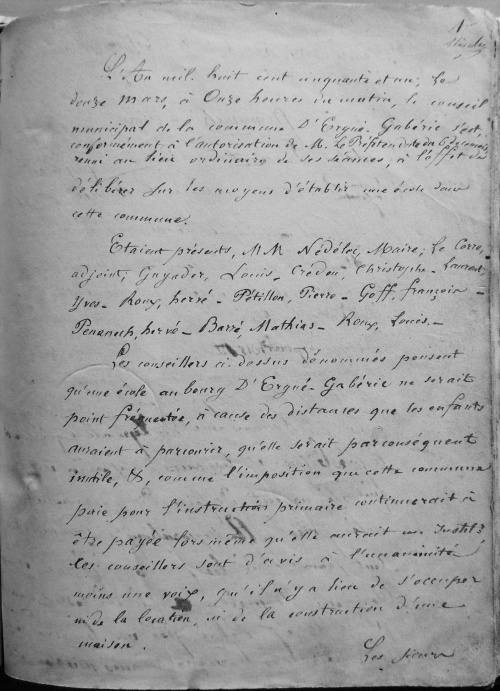 1
L'An mil huit cent cinquante et un, le
douze mars, à Onze heures du matin, le conseil
municipal de la commune D'Ergué-Gabéric s'est,
conformément à l'autorisation de M. le Préfet
réuni au lieu ordinaire de ses séances, à l'effet de
délibérer sur les moyens d'établir une école dans
cette commune.
Etaient présents, MM Nédélec, Maire, Le Corre,
adjoint, Guyader, Louis, Crédou, Christophe - Laurent,
Yves - Roux, hervé - Pétillon, Pierre - Goff, françois -
Penanech, hervé - Barré Mathias - Roux, Louis. -
Les conseillers ci-dessus dénommés pensent
qu'une école au bourg D'Ergué-Gabéric ne serait
point fréquentée, à cause des distances que les enfants
auraient à parcourir, qu'elle serait par conséquent
inutile, &, comme l'imposition que cette commune
paie pour l'instruction primaire continuerait à
être payée lors même qu'elle aurait un Instit.r
les conseillers sont d'avis à l'unanimité
moins une voix, qu'il n'y a lieu de s'occuper
ni de la location, ni de la construction d'une
maison.
Les sieurs